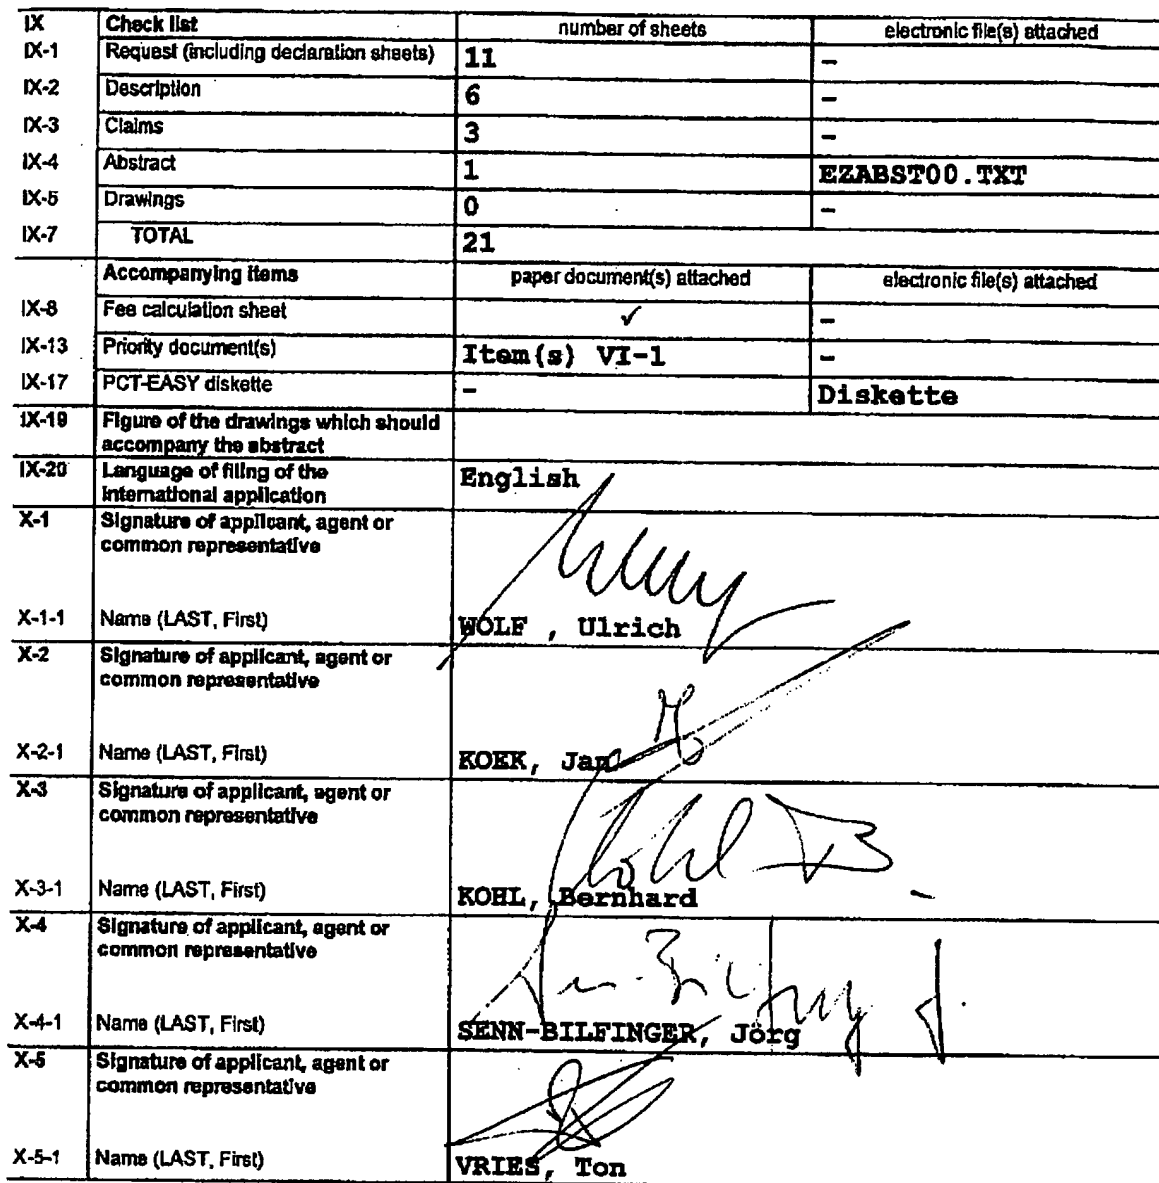 IX Check list number of sheets electronic file(s) attached
IX-1 Request (including declaration sheets) 11 –
IX-2 Description 6 –
IX-3 Claims 3 –
IX-4 Abstract 1 EZABST00.TXT
IX-5 Drawings 0 –
IX-7 TOTAL 21
Accompanying items paper document(s) attached electronic file(s) attached
IX-8 Fee calculation sheet ✓ –
IX-13 Priority document(s) Item(s) VI-1 –
IX-17 PCT-EASY diskette – Diskette
IX-19 Figure of the drawings which should
accompany the abstract
IX-20 Language of filing of the English
international application
X-1 Signature of applicant, agent or
common representative
X-1-1 Name (LAST, First) WOLF , Ulrich
X-2 Signature of applicant, agent or
common representative
X-2-1 Name (LAST, First) KOEK, Jan
X-3 Signature of applicant, agent or
common representative
Kohl B
X-3-1 Name (LAST, First) KOHL, Bernhard
X-4 Signature of applicant, agent or
common representative
X-4-1 Name (LAST, First) SENN-BILFINGER, Jörg
X-5 Signature of applicant, agent or
common representative
X-5-1 Name (LAST, First) VRIES, Ton